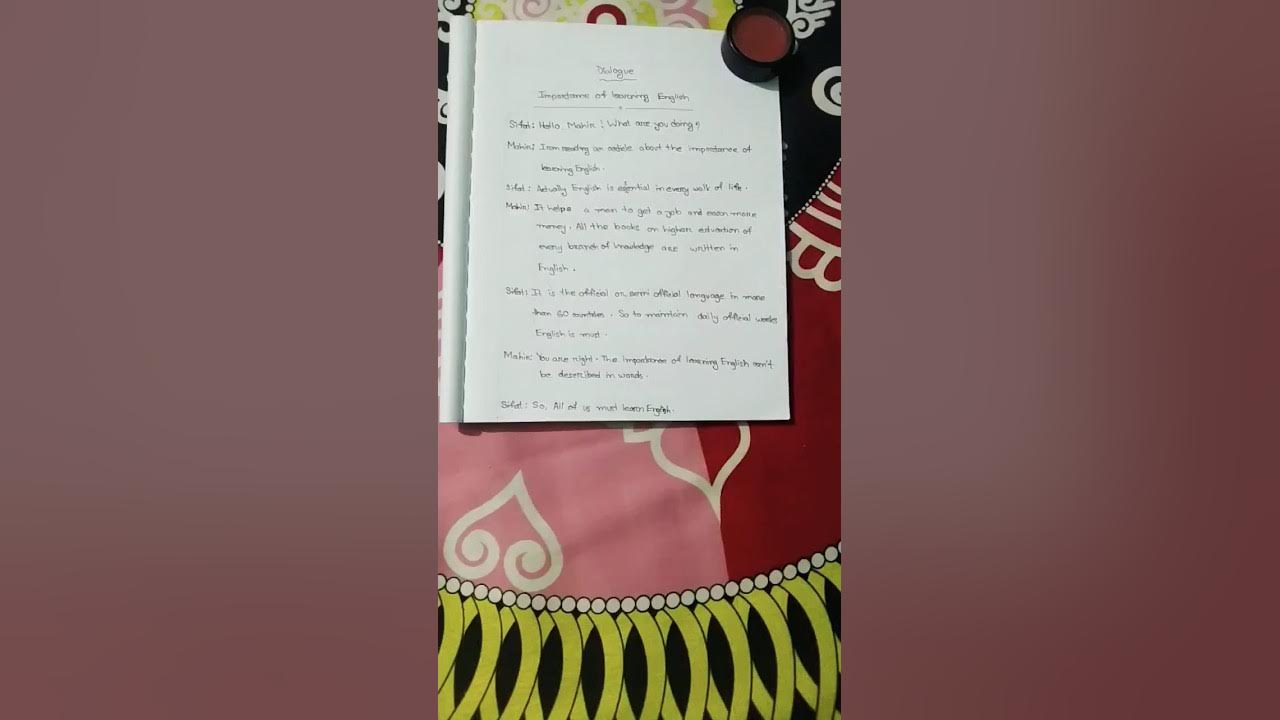 Dialogue
Importance of learning English
Sifat: Hello, Mahir! What are you doing?
Mahir: I am reading an article about the importance of
learning English.
Sifat: Actually English is essential in every walk of life.
Mahir: It helps a man to get a job and earn more
money. All the books on higher education of
every branch of knowledge are written in
English.
Sifat: It is the official or semi official language in more
than 60 countries. So to maintain daily official works
English is must.
Mahir: You are right. The importance of learning English can't
be described in words.
Sifat: So, All of us must learn English.